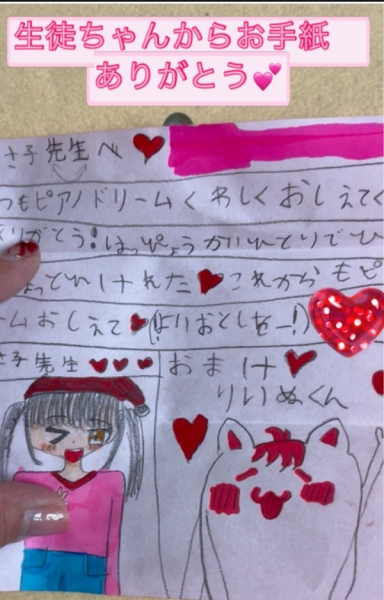 生徒ちゃんからお手紙
ありがとう💕
さ子先生へ
つもピアノドリームくわしくおしえてく
りがとう！はっぴょうかいひとりでひ
ょっとひけれた これからもピ
ームおしえて
子先生
おまけ
りいぬくん